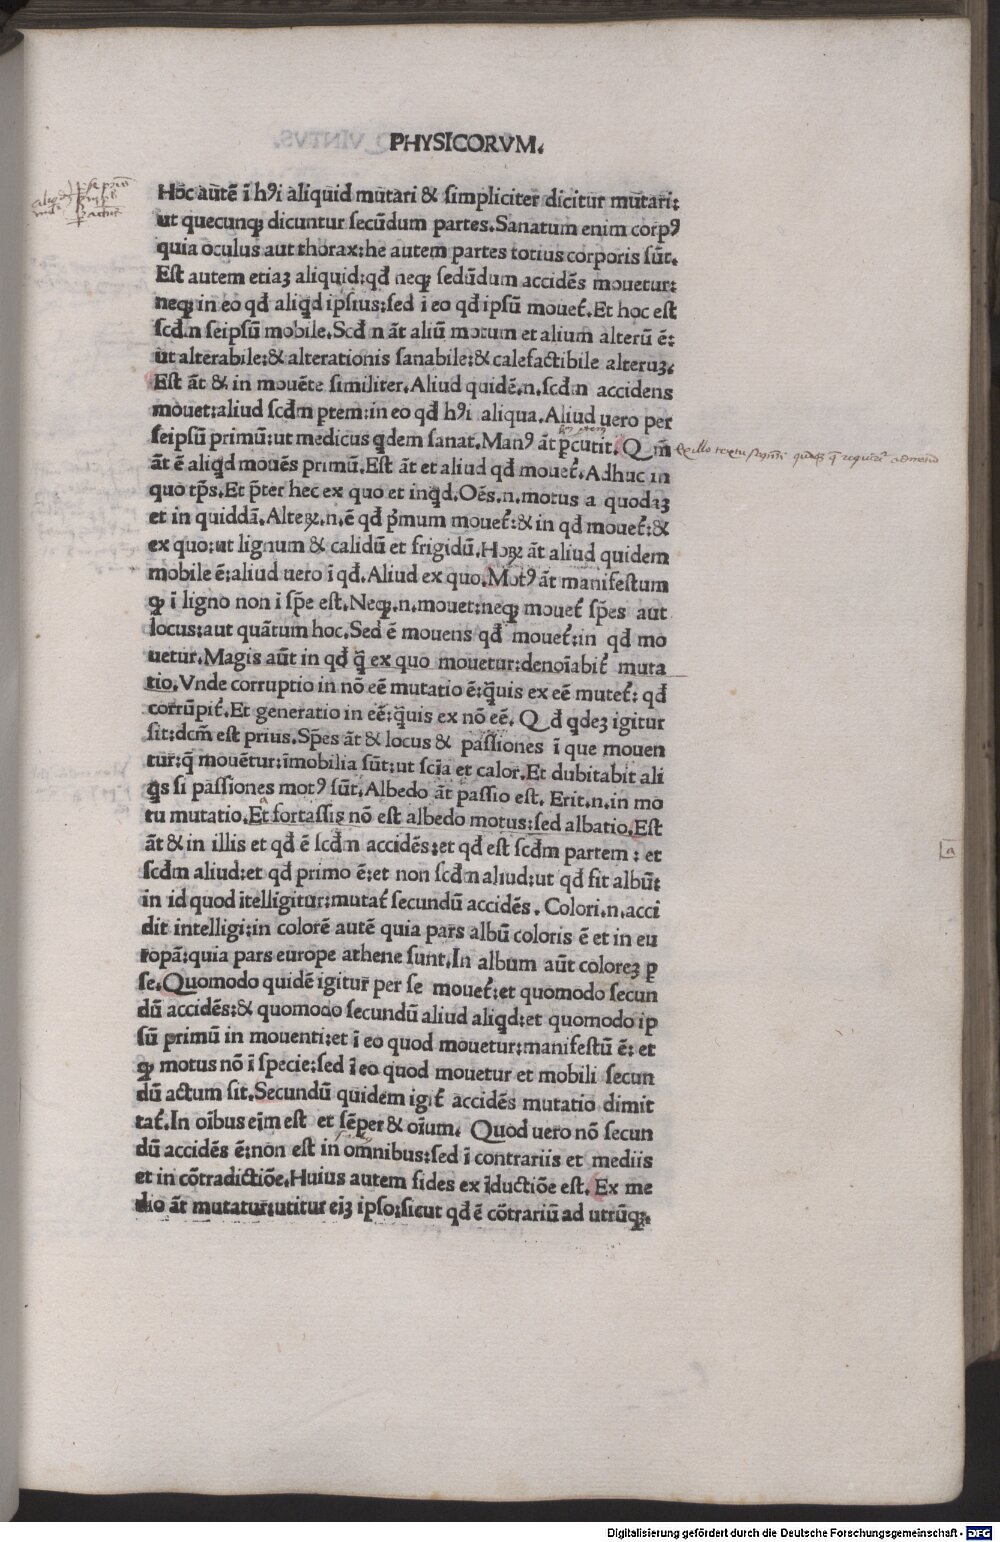 PHYSICORVM.
Hoc autē ī hꝰi aliquid mutari & simpliciter dicitur mutari:
ut quecunqꝫ dicuntur secūdum partes. Sanatum enim corpꝰ
quia oculus aut thorax: he autem partes totius corporis sūt.
Est autem etiaꝫ aliquid: qđ neqꝫ sedūdum accidēs mouetur:
neqꝫ in eo qđ aliqd ipsius: sed ī eo qđ ipsū mouet̄. Et hoc est
scđn seipsū mobile. Scđ n āt aliū motum et alium alterū ē:
ut alterabile: & alterationis sanabile: & calefactibile alteruꝫ.
Est āt & in mouēte similiter. Aliud quidē .n. scđm accidens
mouet: aliud scđm ptem: in eo qđ hꝰi aliqua. Aliud uero per
seipsū primū: ut medicus qdem sanat. Manꝰ āt ꝑcutit. Qm̄
āt ē aliqd mouēs primū. Est āt et aliud qđ mouet̄. Adhuc in
quo tp̄s. Et p̄ter hec ex quo et inqd. Oēs .n. motus a quodaꝫ
et in quiddā. Alteꝝ .n. ē qđ p̄mum mouet̄: & in qđ mouet̄: &
ex quo: ut lignum & calidū et frigidū. Hoꝝ āt aliud quidem
mobile ē: aliud uero ī qđ. Aliud ex quo. Motꝰ āt manifestum
qꝫ ī ligno non ī sp̄e est. Neqꝫ .n. mouet: neqꝫ mouet̄ sp̄es aut
locus: aut quātum hoc. Sed ē mouens qđ mouet̄: in qđ mo
uetur. Magis aūt in qđ q̄ ex quo mouetur: denoīabit̄ muta
tio. Vnde corruptio in nō eē mutatio ē: q̄uis ex eē mutet̄: qđ
corrūpit̄. Et generatio in eē: q̄uis ex nō eē. Qđ qdeꝫ igitur
sit: dcm̄ est prius. Sp̄es āt & locus & passiones ī que mouen
tur: q̄ mouētur: īmobilia sūt: ut scīa et calor. Et dubitabit ali
qs si passiones motꝰ sūt. Albedo āt passio est. Erit .n. in mo
tu mutatio. Et fortassis nō est albedo motus: sed albatio. Est
āt & in illis et qđ ē scđn accidēs: et qđ est scđm partem: et
scđm aliud: et qđ primo ē: et non scđm aliud: ut qđ fit albū:
in id quod itelligitur: mutat̄ secundū accidēs. Colori .n. acci
dit intelligi: in colorē autē quia pars albū coloris ē et in eu
ropā: quia pars europe athene sunt. In album aūt coloreꝫ ꝑ
se. Quomodo quidē igitur per se mouet̄: et quomodo secun
dū accidēs: & quomodo secundū aliud aliqd: et quomodo ip
sū primū in mouenti: et ī eo quod mouetur: manifestū ē: et
qꝫ motus nō ī specie: sed ī eo quod mouetur et mobili secun
dū actum sit. Secundū quidem igit̄ accidēs mutatio dimit
tat̄. In oībus eīm est et sēper & oīum. Quod uero nō secun
dū accidēs ē: non est in omnibus: sed ī contrariis et mediis
et in cōtradictiōe. Huius autem fides ex īductiōe est. Ex me
dio āt mutatur: utitur eiꝫ ipso: sicut qđ ē cōtrariū ad utrūqꝫ.
a
Digitalisierung gefördert durch die Deutsche Forschungsgemeinschaft - DFG